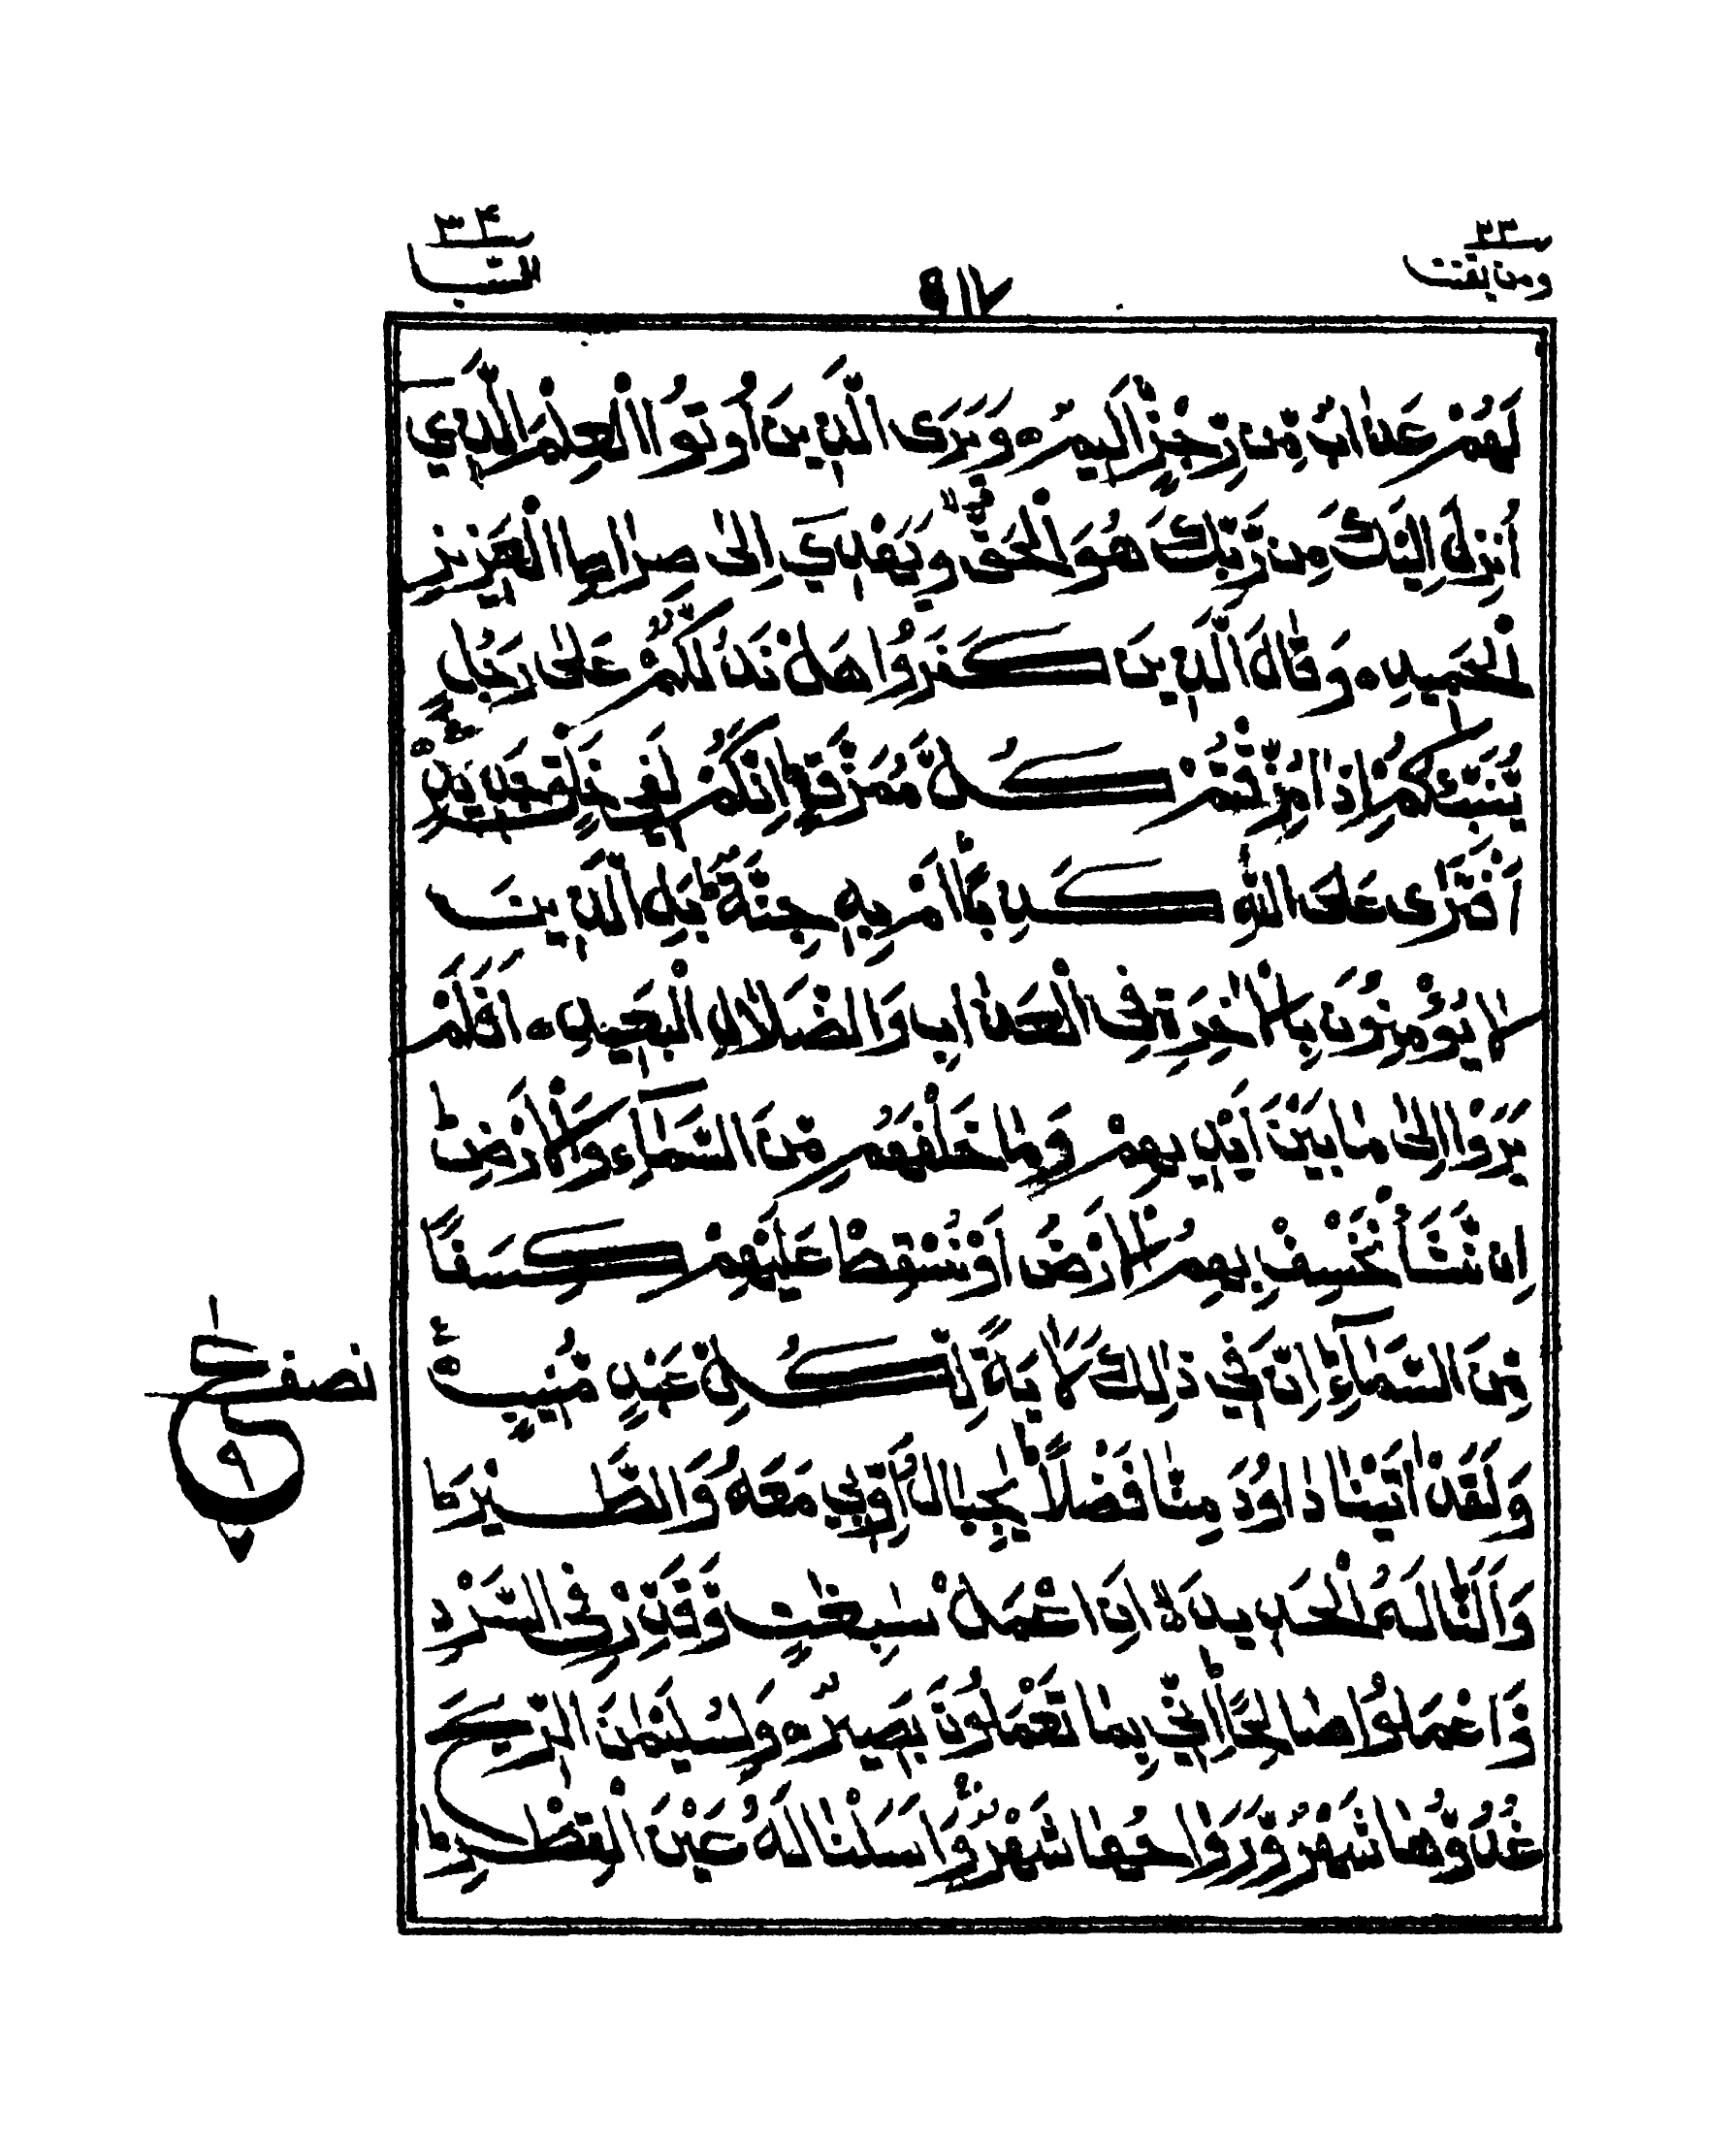 ومن يقنت ٢٢
٩١٧
السّبا ٣٤
لَهُمْ عَذَابٌ مِّن رِّجْزٍ اَلِيمٌ ه وَيَرَى الَّذِينَ اُوتُوا الْعِلْمَ الَّذِي
اُنزِلَ اِلَيْكَ مِن رَّبِّكَ هُوَ الْحَقَّ وَيَهْدِي اِلٰى صِرَاطِ الْعَزِيزِ
الْحَمِيدِ ه وَقَالَ الَّذِينَ كَفَرُوا هَلْ نَدُلُّكُمْ عَلٰى رَجُلٍ
يُّنَبِّئُكُمْ اِذَا مُزِّقْتُمْ كُلَّ مُمَزَّقٍ ط اِنَّكُمْ لَفِي خَلْقٍ جَدِيدٍ
اَفْتَرٰى عَلَى اللّٰهِ كَذِبًا اَمْ بِهِ جِنَّةٌ ط بَلِ الَّذِينَ
لَا يُؤْمِنُونَ بِالْاٰخِرَةِ فِى الْعَذَابِ وَالضَّلَالِ الْبَعِيدِ ه اَفَلَمْ
يَرَوْا اِلٰى مَا بَيْنَ اَيْدِيهِمْ وَمَا خَلْفَهُم مِّنَ السَّمَآءِ وَالْاَرْضِ ط
اِن نَّشَأْ نَخْسِفْ بِهِمُ الْاَرْضَ اَوْ نُسْقِطْ عَلَيْهِمْ كِسَفًا
مِّنَ السَّمَآءِ ط اِنَّ فِي ذٰلِكَ لَاٰيَةً لِّكُلِّ عَبْدٍ مُّنِيبٍ ه
وَلَقَدْ اٰتَيْنَا دَاوُدَ مِنَّا فَضْلًا ط يٰجِبَالُ اَوِّبِي مَعَهُ وَالطَّيْرَ ط
وَاَلَنَّا لَهُ الْحَدِيدَ ه لا اَنِ اعْمَلْ سٰبِغٰتٍ وَّقَدِّرْ فِى السَّرْدِ
وَاعْمَلُوا صَالِحًا ط اِنِّي بِمَا تَعْمَلُونَ بَصِيرٌ ه وَلِسُلَيْمٰنَ الرِّيحَ
غُدُوُّهَا شَهْرٌ وَّرَوَاحُهَا شَهْرٌ وَّاَسَلْنَا لَهُ عَيْنَ الْقِطْرِ ط
نصف
ع
٩